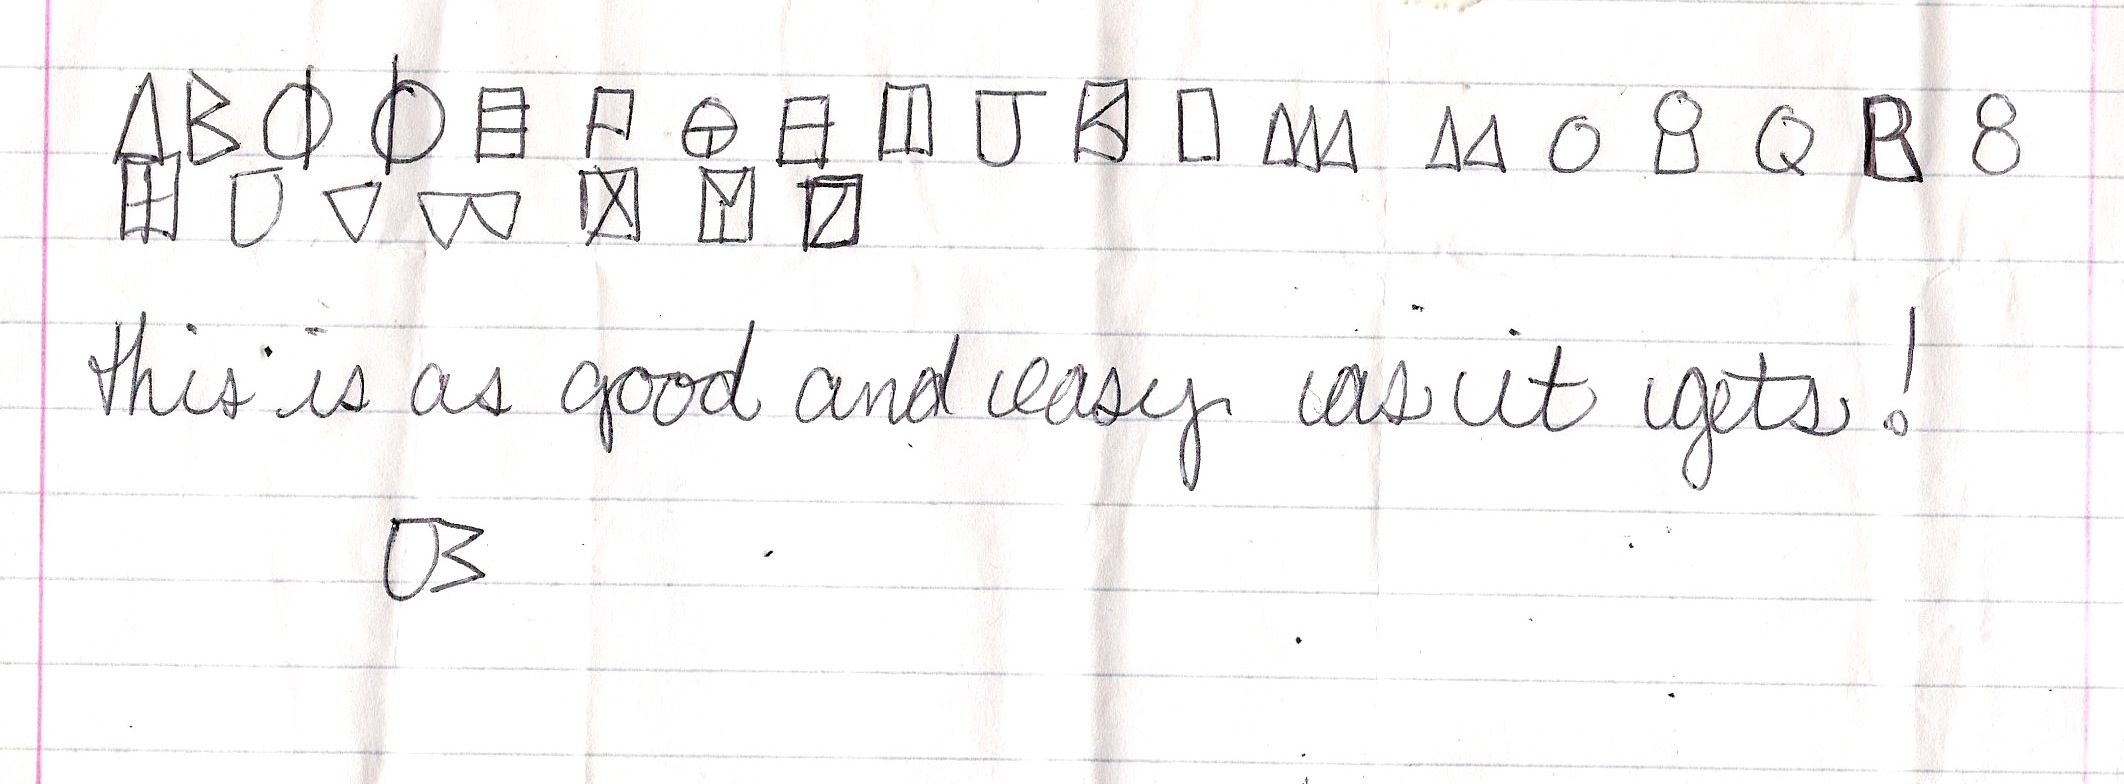 A B C D E F G H I J K L M N O P Q R S
T U V W X Y Z
this is as good and easy as it gets!